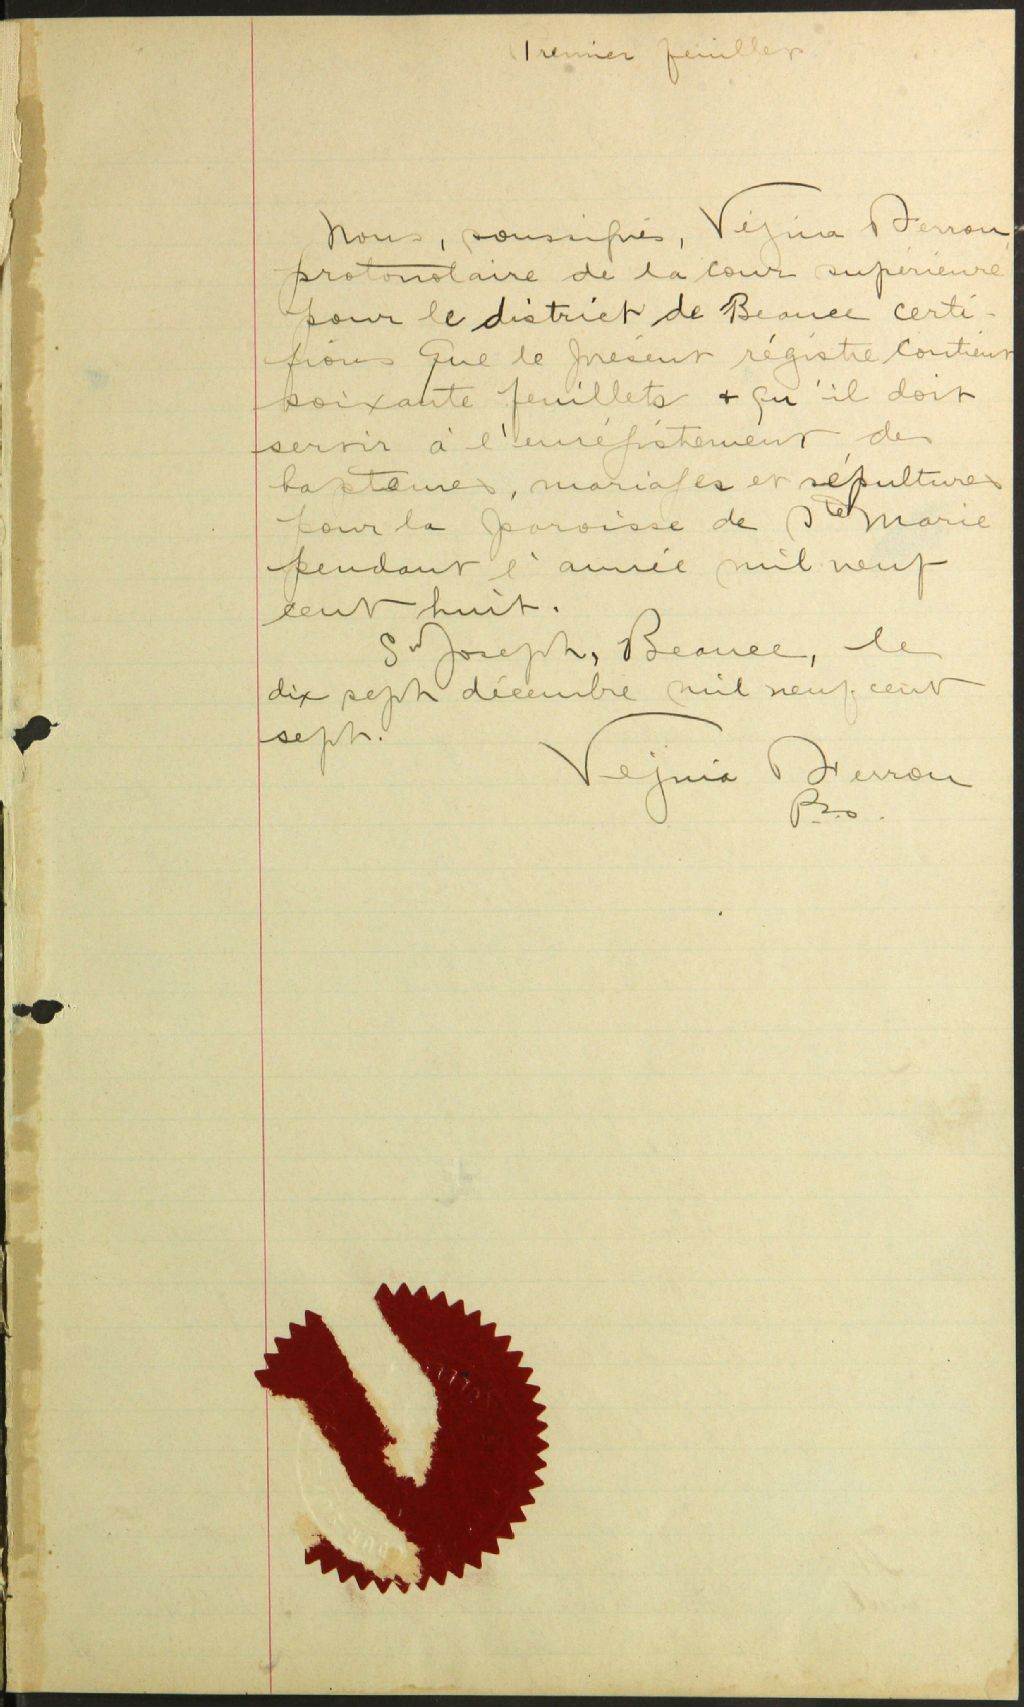 Premier feuillet
Nous, soussignés, Vézina & Perron,
protonotaire de la cour supérieure
pour le district de Beauce certi-
fions que le présent régistre contient
soixante feuillets & qu'il doit
servir à l'enrégistrement des
baptemes, mariages et sépultures
pour la paroisse de Ste Marie
pendant l'année mil neuf
cent huit.
St Joseph, Beauce, le
dix sept décembre mil neuf cent
sept.
Vézina &